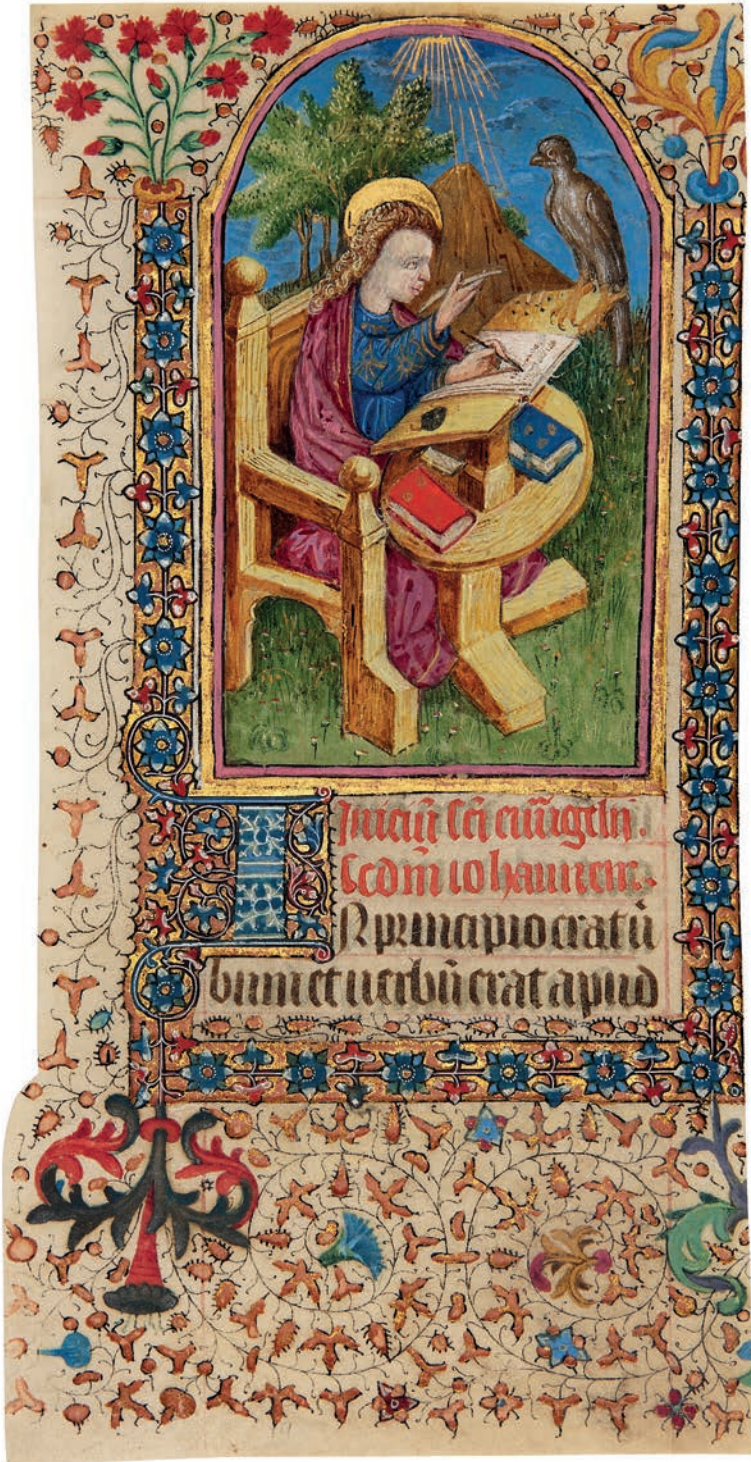 Iniciū sc̄i euūgelii.
Scdm̄ iohannem.
IN principio erat ū
bum et uerbū erat apud